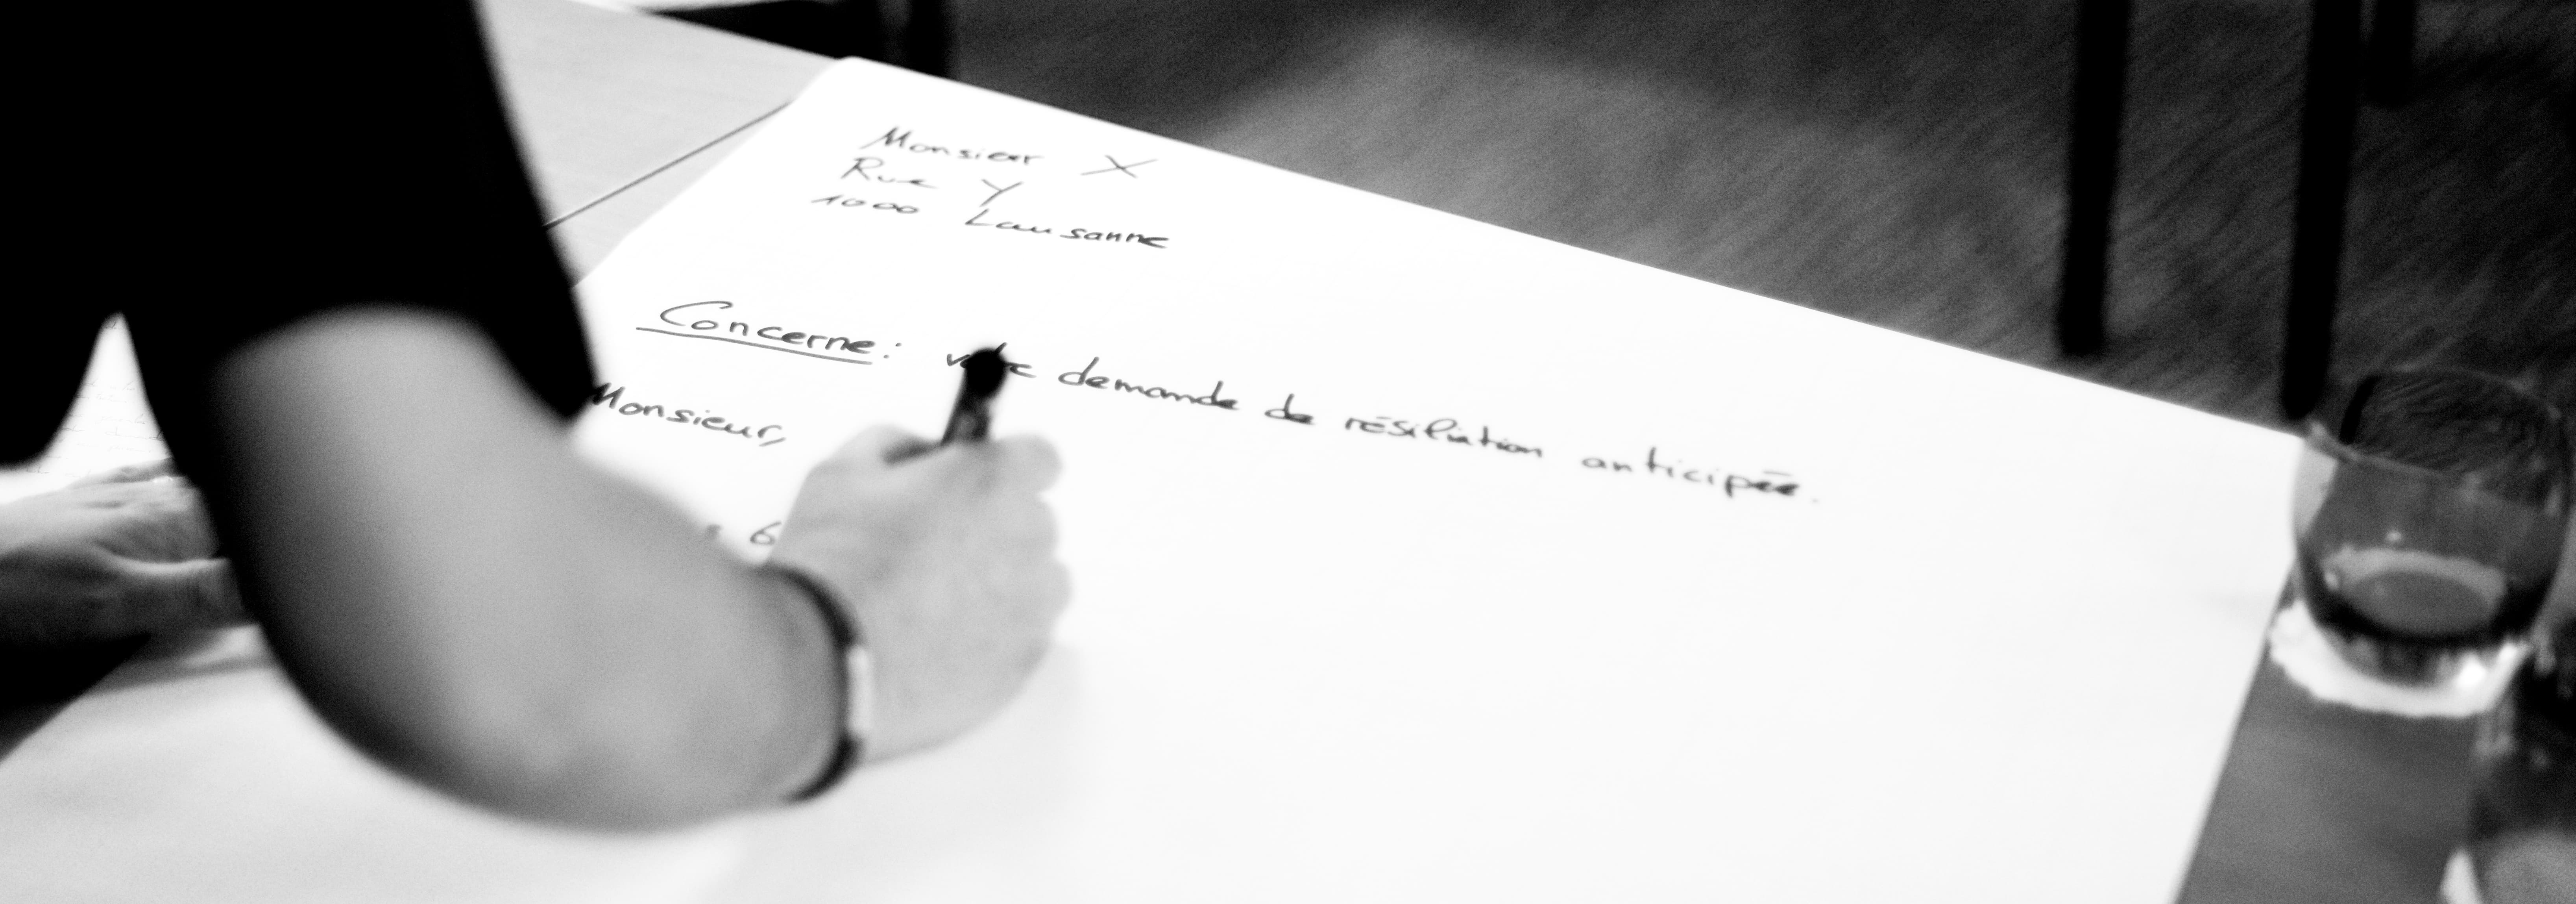 Monsieur X
Rue Y
1000 Lausanne
Concerne: votre demande de résiliation anticipée.
Monsieur,
6